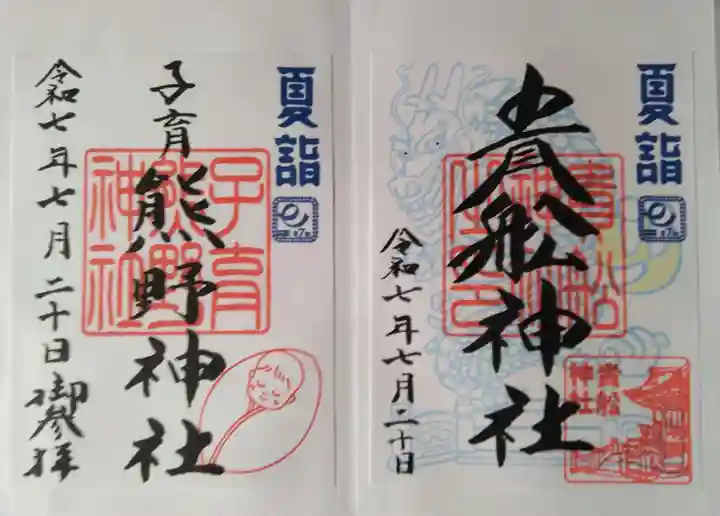 夏詣
貴船神社
貴船
神社
令和七年七月二十日
夏詣
子育熊野神社
子育
熊野
神社
令和七年七月二十日御参拝